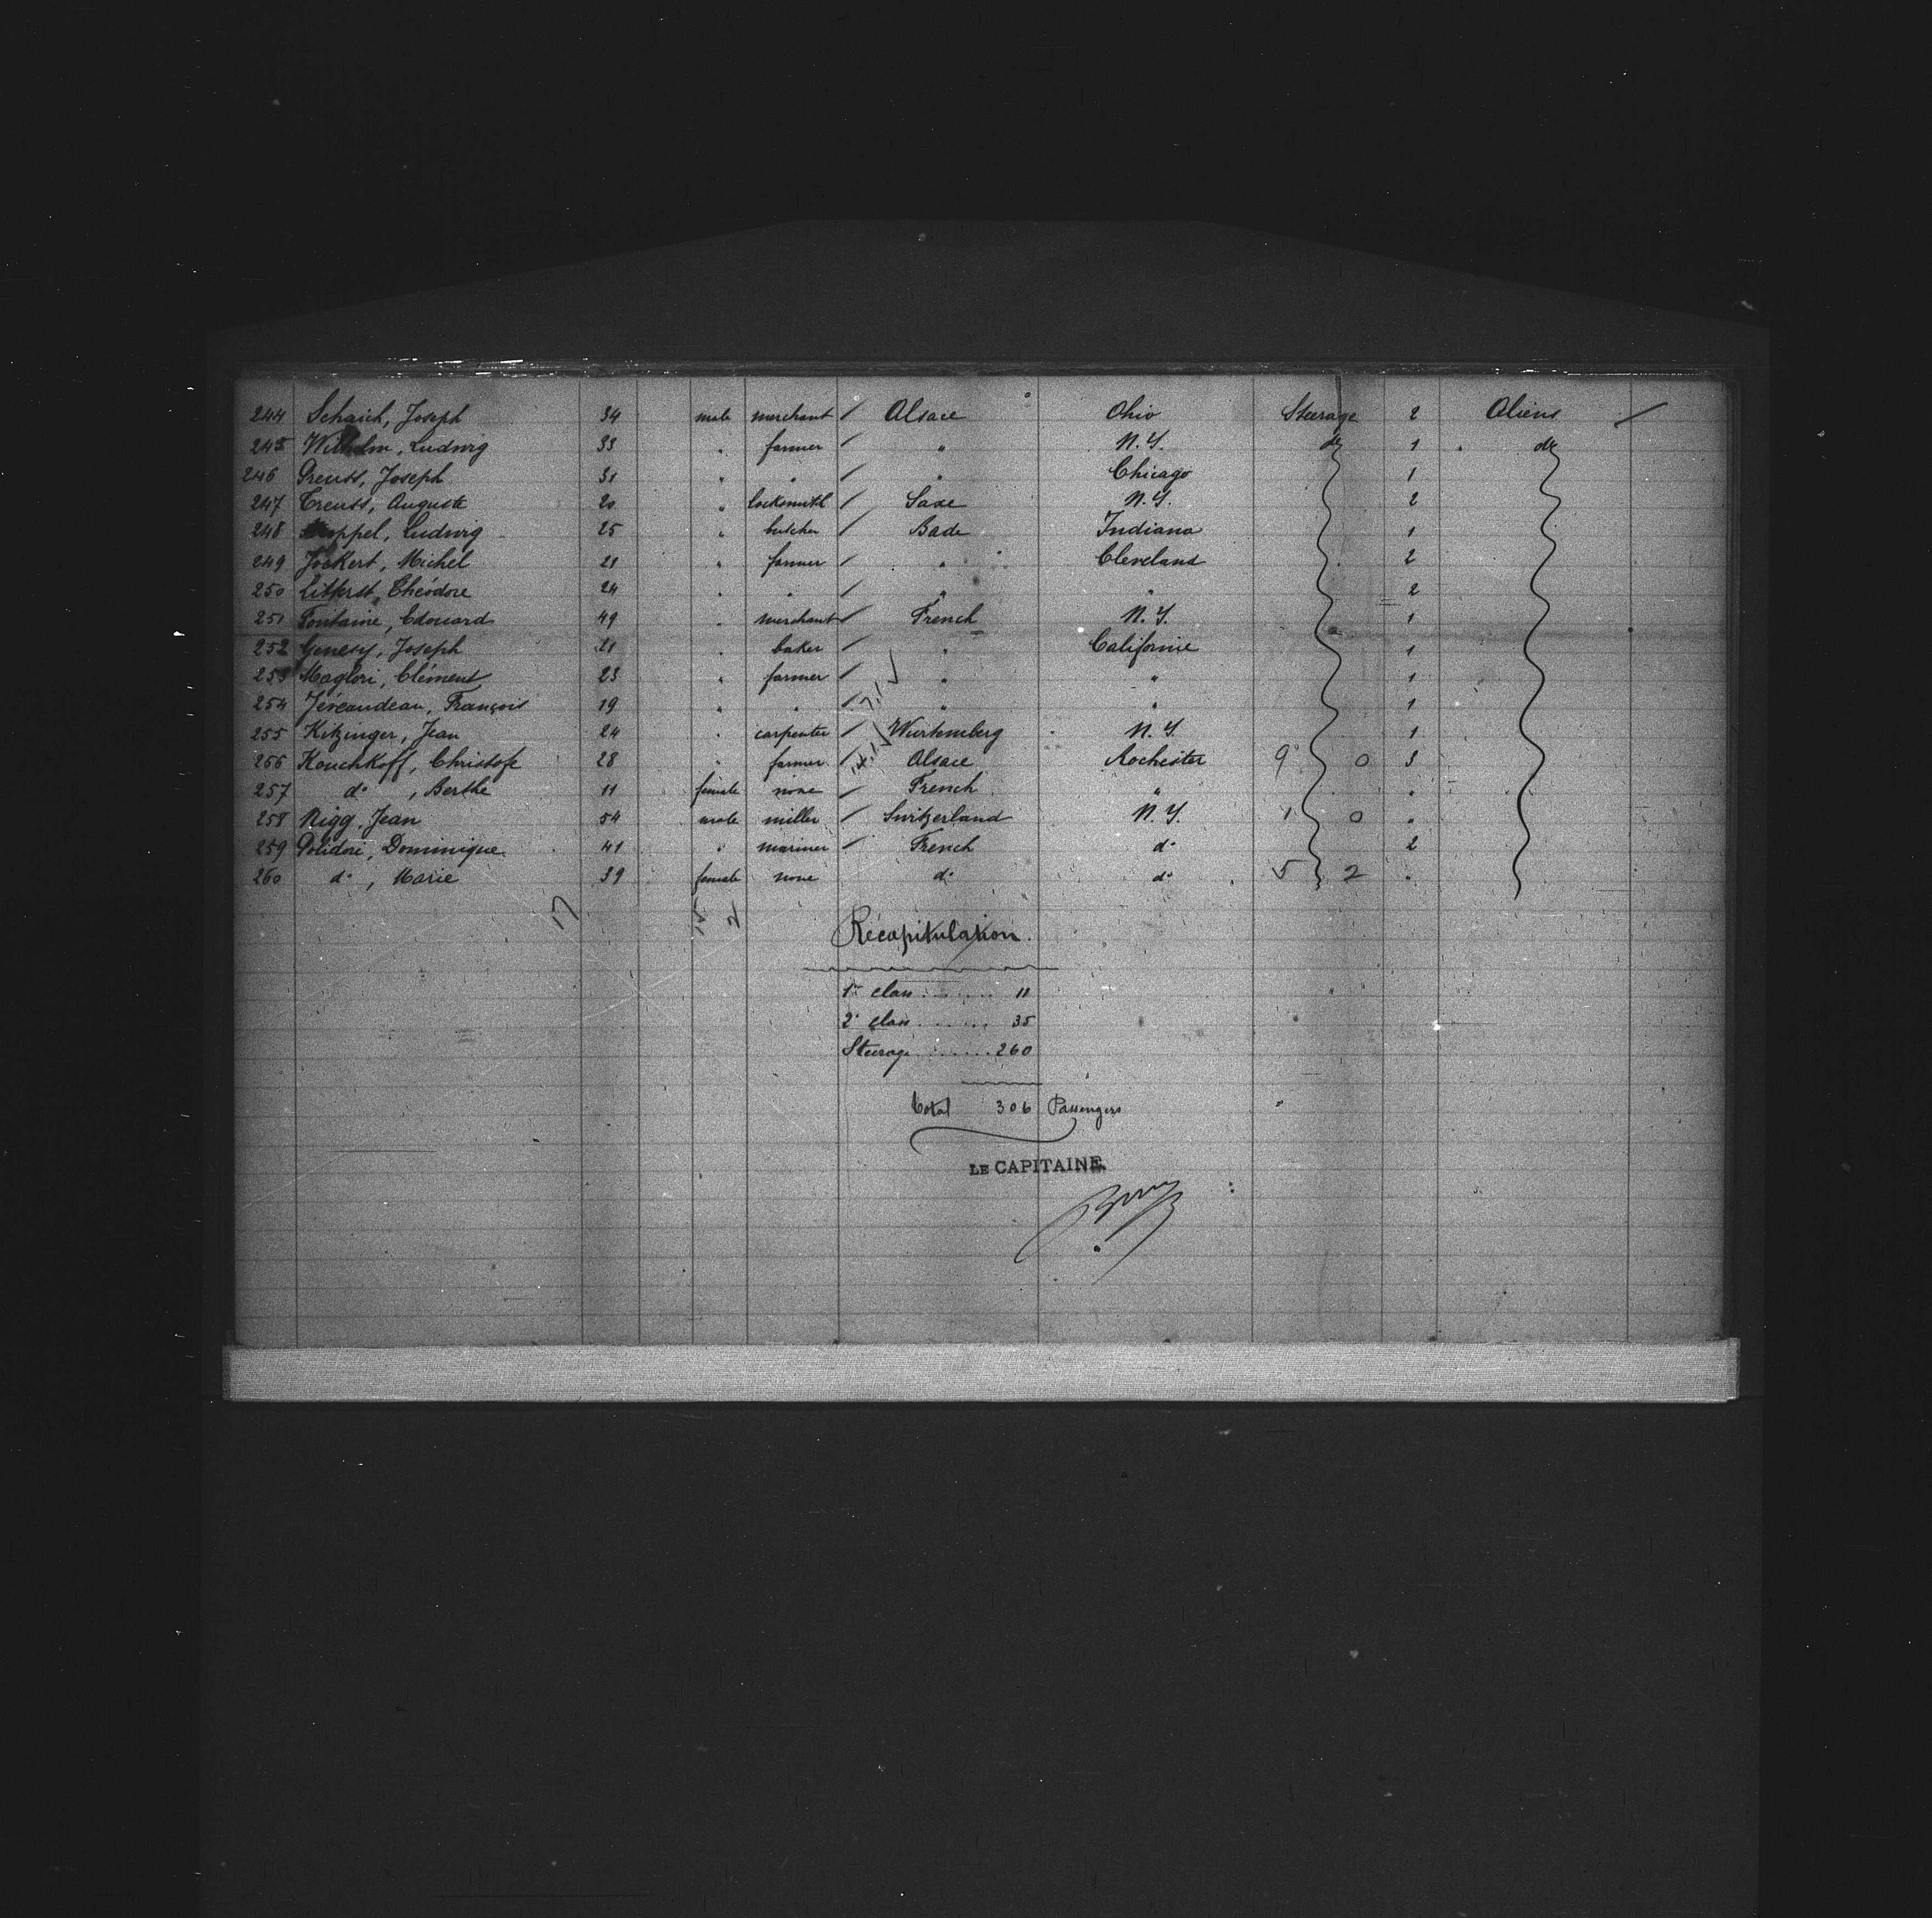 244 Schaich, Joseph 34 male merchant / Alsace Ohio Steerage 2 Aliens /
245 Wilhelm, Ludwig 33 " farmer / " N.Y. do 1 do
246 Preuss, Joseph 31 " " / " Chicago 1
247 Treuss, Auguste 20 " locksmith / Saxe N.Y. 2
248 Ludwig 25 " butcher / Bade Indiana 1
249 Jockert, Michel 21 " farmer / " Cleveland 2
250 Litterst, Théodore 24 " " / " " 2
251 Fontaine, Edouard 49 " merchant / French N.Y. 1
252 Genesy, Joseph 21 " baker / " Californie 1
253 Maglori, Clément 23 " farmer / " " 1
254 François 19 " " / " " 1
255 Kitzinger, Jean 24 " carpenter / Wurtemberg N.Y. 1
256 Kouchkoff, Christofe 28 " farmer Alsace Rochester 9 0 3
257 do, Berthe 11 female none / French " "
258 Nigg, Jean 54 male miller / Switzerland N.Y. 1 0 "
259 Polidori, Dominique 41 " mariner / French do 2
260 do, Marie 39 female none do do 5 2 "
17 15 2
Récapitulation.
1re class 11
2e class 35
Steerage 260
Total 306 Passengers
LE CAPITAINE.